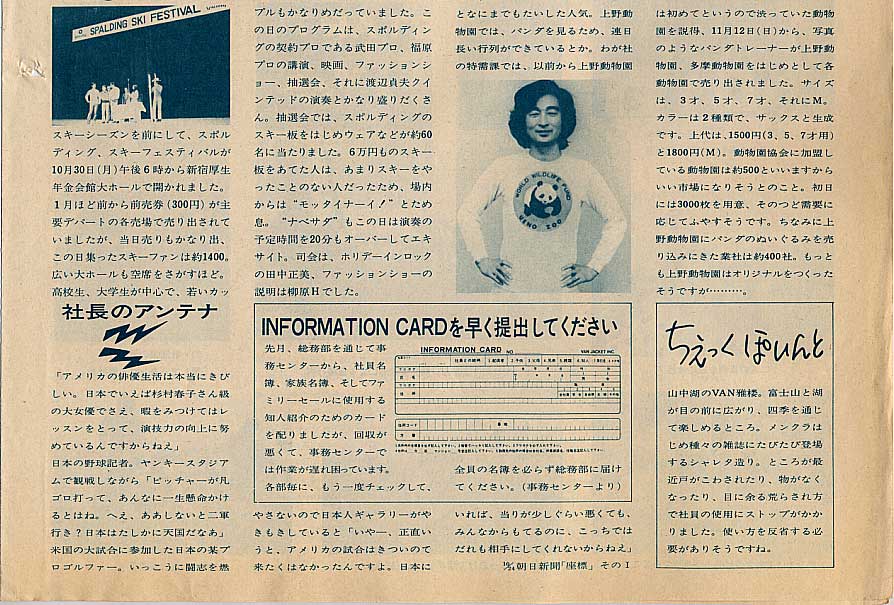 SPALDING SKI FESTIVAL
スキーシーズンを前にして、スポル
ディング、スキーフェスティバルが
10月30日(月)午後6時から新宿厚生
年金会館大ホールで開かれました。
1月ほど前から前売券(300円)が主
要デパートの各売場で売り出されて
いましたが、当日売りもかなり出、
この日集ったスキーファンは約1400。
広い大ホールも空席をさがすほど。
高校生、大学生が中心で、若いカッ
プルもかなりめだっていました。こ
の日のプログラムは、スポルディン
グの契約プロである武田プロ、福原
プロの講演、映画、ファッションシ
ョー、抽選会、それに渡辺貞夫クイ
ンテッドの演奏とかなり盛りだくさ
ん。抽選会では、スポルディングの
スキー板をはじめウェアなどが約60
名に当たりました。6万円ものスキー
板をあてた人は、あまりスキーをや
ったことのない人だったため、場内
からは“モッタイナーイ!”とため
息。“ナベサダ”もこの日は演奏の
予定時間を20分もオーバーしてエキ
サイト。司会は、ホリデーインロック
の田中正美、ファッションショーの
説明は柳原Hでした。
となにまでもたいした人気。上野動
物園では、パンダを見るため、連日
長い行列ができているとか。わが社
の特需課では、以前から上野動物園
WORLD WILDLIFE FUND
UENO ZOO
は初めてというので渋っていた動物
園を説得、11月12日(日)から、写真
のようなパンダトレーナーが上野動
物園、多摩動物園をはじめとして各
動物園で売り出されました。サイズ
は、3才、5才、7才、それにM。
カラーは2種類で、サックスと生成
です。上代は、1500円(3、5、7才用)
と1800円(M)。動物園協会に加盟し
ている動物園は約500といいますから
いい市場になりそうとのこと。初日
には3000枚を用意、そのつど需要に
応じてふやすそうです。ちなみに上
野動物園にパンダのぬいぐるみを売
り込みにきた業社は約400社。もっと
も上野動物園はオリジナルをつくった
そうですが………。
社長のアンテナ
「アメリカの俳優生活は本当にきび
しい。日本でいえば杉村春子さん級
の大女優でさえ、暇をみつけてはレ
ッスンをとって、演技力の向上に努
めているんですからねえ」
日本の野球記者。ヤンキースタジア
ムで観戦しながら「ピッチャーが凡
ゴロ打って、あんなに一生懸命かけ
るとはね。へえ、ああしないと二軍
行き?日本はたしかに天国だなあ」
米国の大試合に参加した日本の某プ
ロゴルファー。いっこうに闘志を燃
やさないので日本人ギャラリーがや
きもきしていると「いやー、正直い
うと、アメリカの試合はきついので
来たくはなかったんですよ。日本に
いれば、当りが少しぐらい悪くても、
みんなからもてるのに、こっちでは
だれも相手にしてくれないからねえ」
朝日新聞「座標」その1
INFORMATION CARDを早く提出してください
先月、総務部を通じて事
務センターから、社員名
簿、家族名簿、そしてファ
ミリーセールに使用する
知人紹介のためのカード
を配りましたが、回収が
悪くて、事務センターで
は作業が遅れ困っています。
各部毎に、もう一度チェックして、
全員の名簿を必らず総務部に届け
てください。(事務センターより)
INFORMATION CARD NO
VAN JACKET INC.
ちぇっくぽいんと
山中湖のVAN雅楼。富士山と湖
が目の前に広がり、四季を通じ
て楽しめるところ。メンクラは
じめ種々の雑誌にたびたび登場
するシャレタ造り。ところが最
近戸がこわされたり、物がなく
なったり、目に余る荒らされ方
で社員の使用にストップがかか
りました。使い方を反省する必
要がありそうですね。